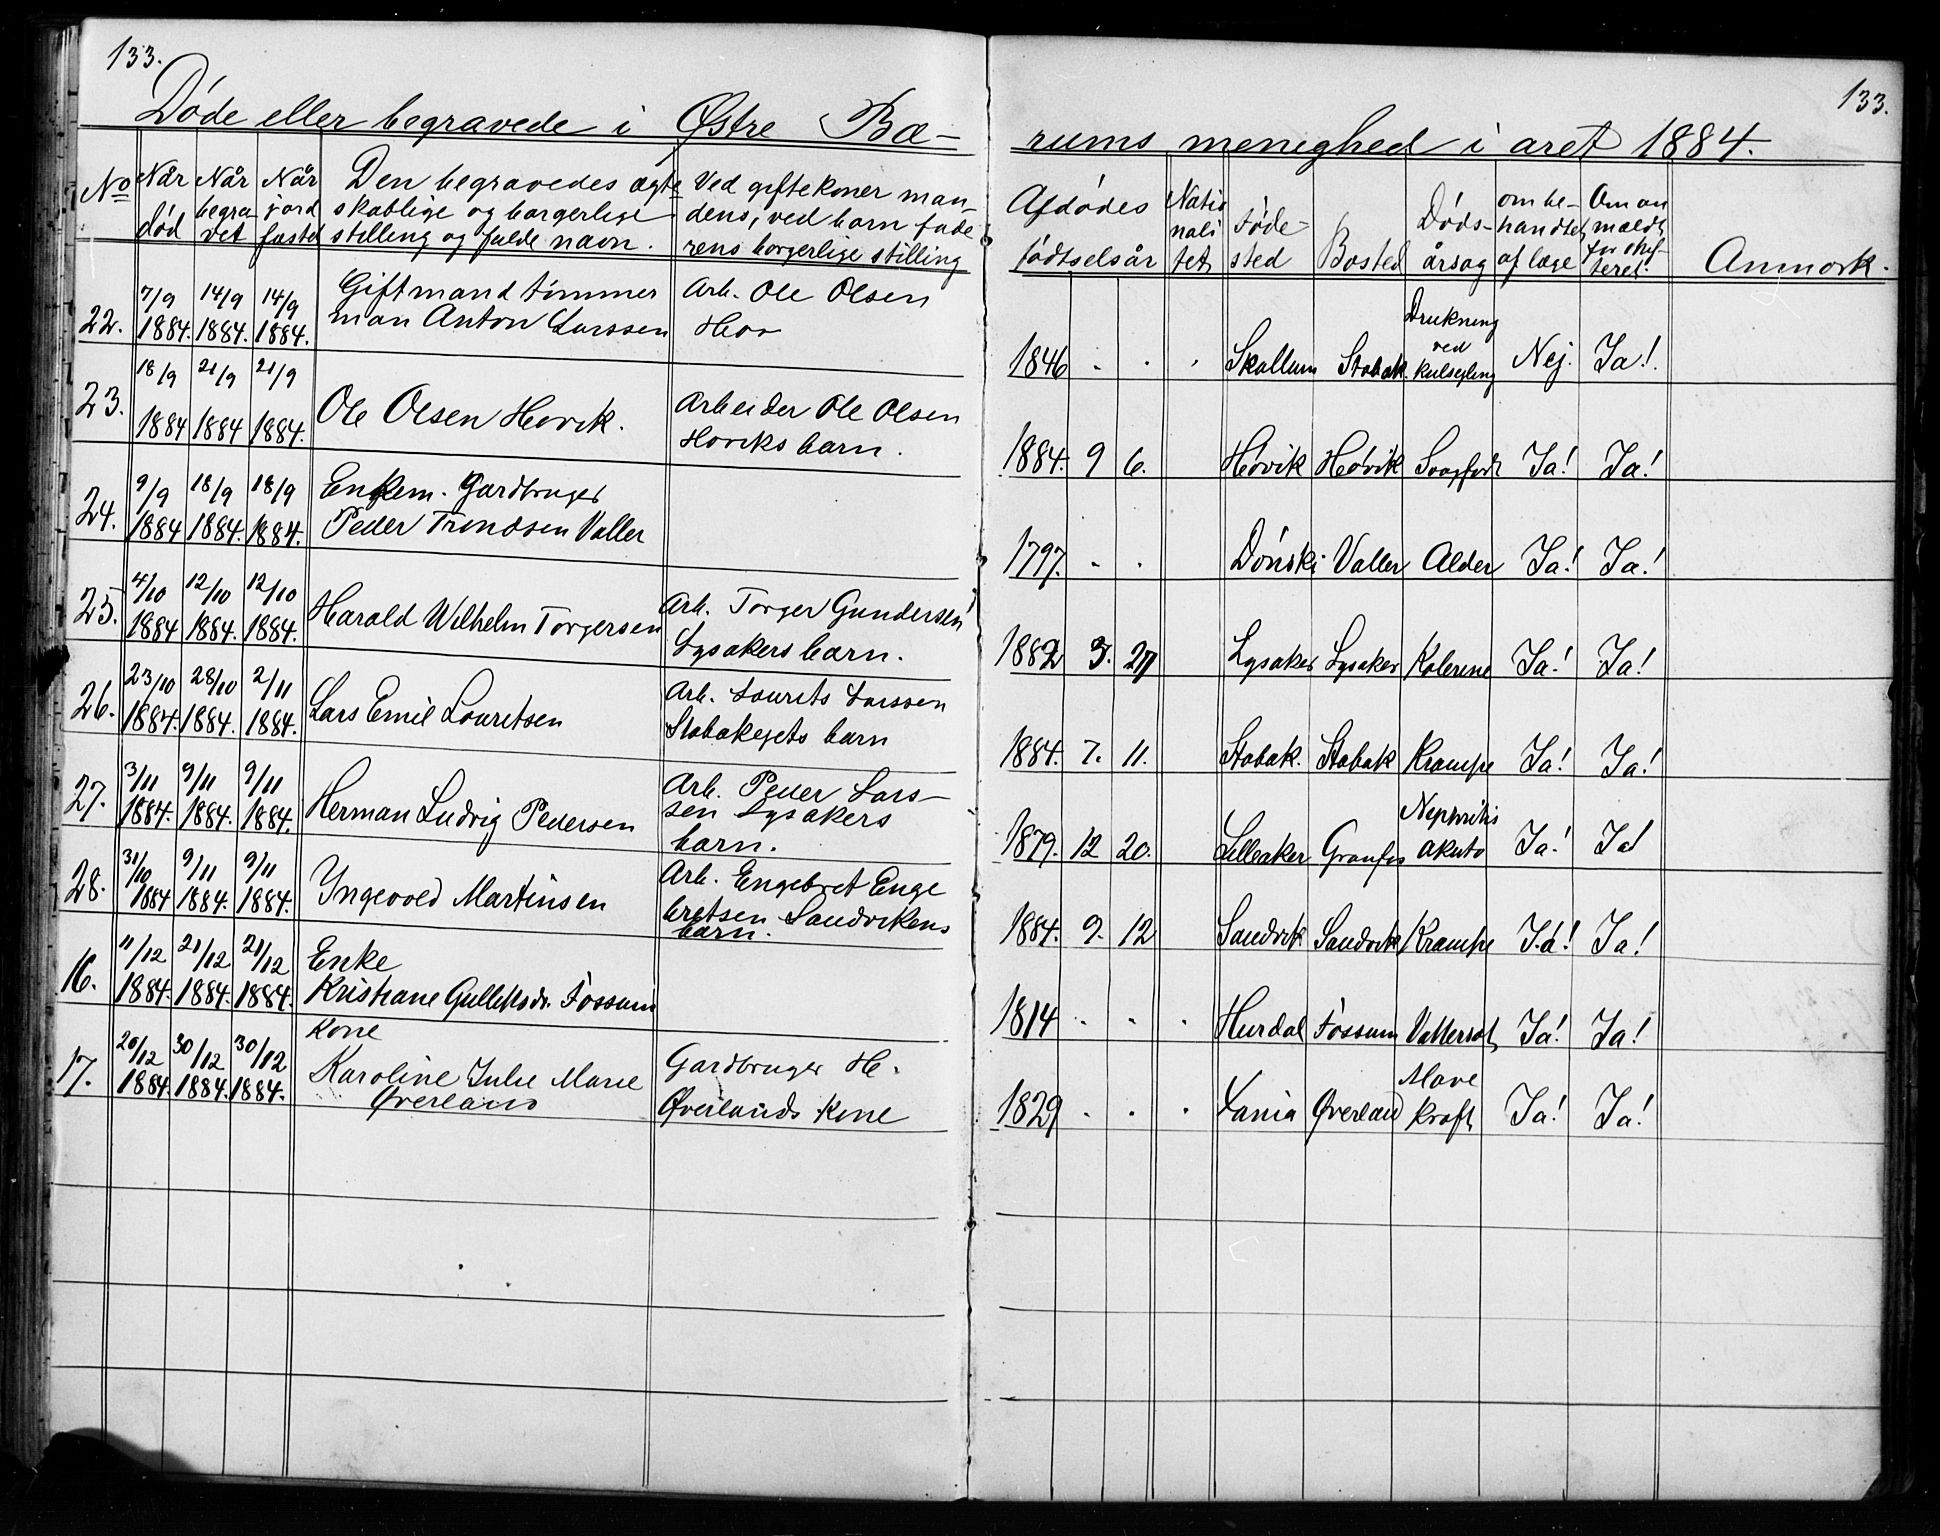 133.
133.
Døde eller begravede i Østre Bæ-
rums menighed i året 1884.
No
Når død
Når begra- vet
Når jord fæstet
Den begravedes ægte
skablige og borgerlige
stilling og fulde navn.
Ved giftekoner man-
dens, ved barn fade
rens borgerlige stilling
Afdødes
fødselsår
Natio
nali
tet
Føde-
sted
Bosted
Døds-
årsag
om be-
handlet
af læge
Om an
mældt
for skif
teret.
Anmærk.
22. 7/9 1884. 14/9 1884. 14/9 1884.
Gift mand tømmer
man Anton Larssen
Arb. Ole Olsen
1846 Skallum Stabæk. Drukning
ved
kulseiling Nej. Ja!
23. 18/9 1884 21/9 1884 21/9 1884.
Ole Olsen Høvik.
Arbeider Ole Olsen
Høviks barn.
1884. 9 6. Høvik Høvik Svagfødt Ja! Ja!
24. 9/9 1884 18/9 1884. 18/9 1884.
Enkem. Gardbruger
Peder Trondsen Valler
1797. Dønski Valler Alder Ja! Ja!
25. 4/10 1884 12/10 1884. 12/10 1884.
Harald Wilhelm Torgersen
Arb. Torger Gundersen
Lysakers barn.
1882 3. 27 Lysaker Lysaker Kolerine Ja! Ja!
26. 23/10 1884. 28/10 1884. 2/11 1884.
Lars Emil Lauritsen
Arb. Laurits Larssen
Stabækejets barn
1884. 7. 11. Stabæk. Stabæk Krampe Ja! Ja!
27. 3/11 1884. 9/11 1884. 9/11 1884.
Herman Ludvig Pedersen
Arb. Peder Lars-
sen Lysakers
barn.
1879. 12 20. Lilleaker Granfos Nephritis
akuta Ja! Ja!
28. 31/10 1884 9/11 1884. 9/11 1884.
Yngvold Martinsen
Arb. Engebret Enge
bretsen Sandvikens
barn.
1884. 9. 12 Sandvik Sandvik Krampe Ja! Ja!
16. 11/12 1884. 21/12 1884. 21/12 1884.
Enke
Kristiane Gulliksdr. Fossum
1814 Hurdal Fossum Vattersot Ja! Ja!
17. 20/12 1884. 30/12 1884. 30/12 1884.
Kone
Karoline Julie Marie
Øverland
Gardbruger H.
Øverlands kone
1829 Øverland Mave
kræft Ja! Ja!